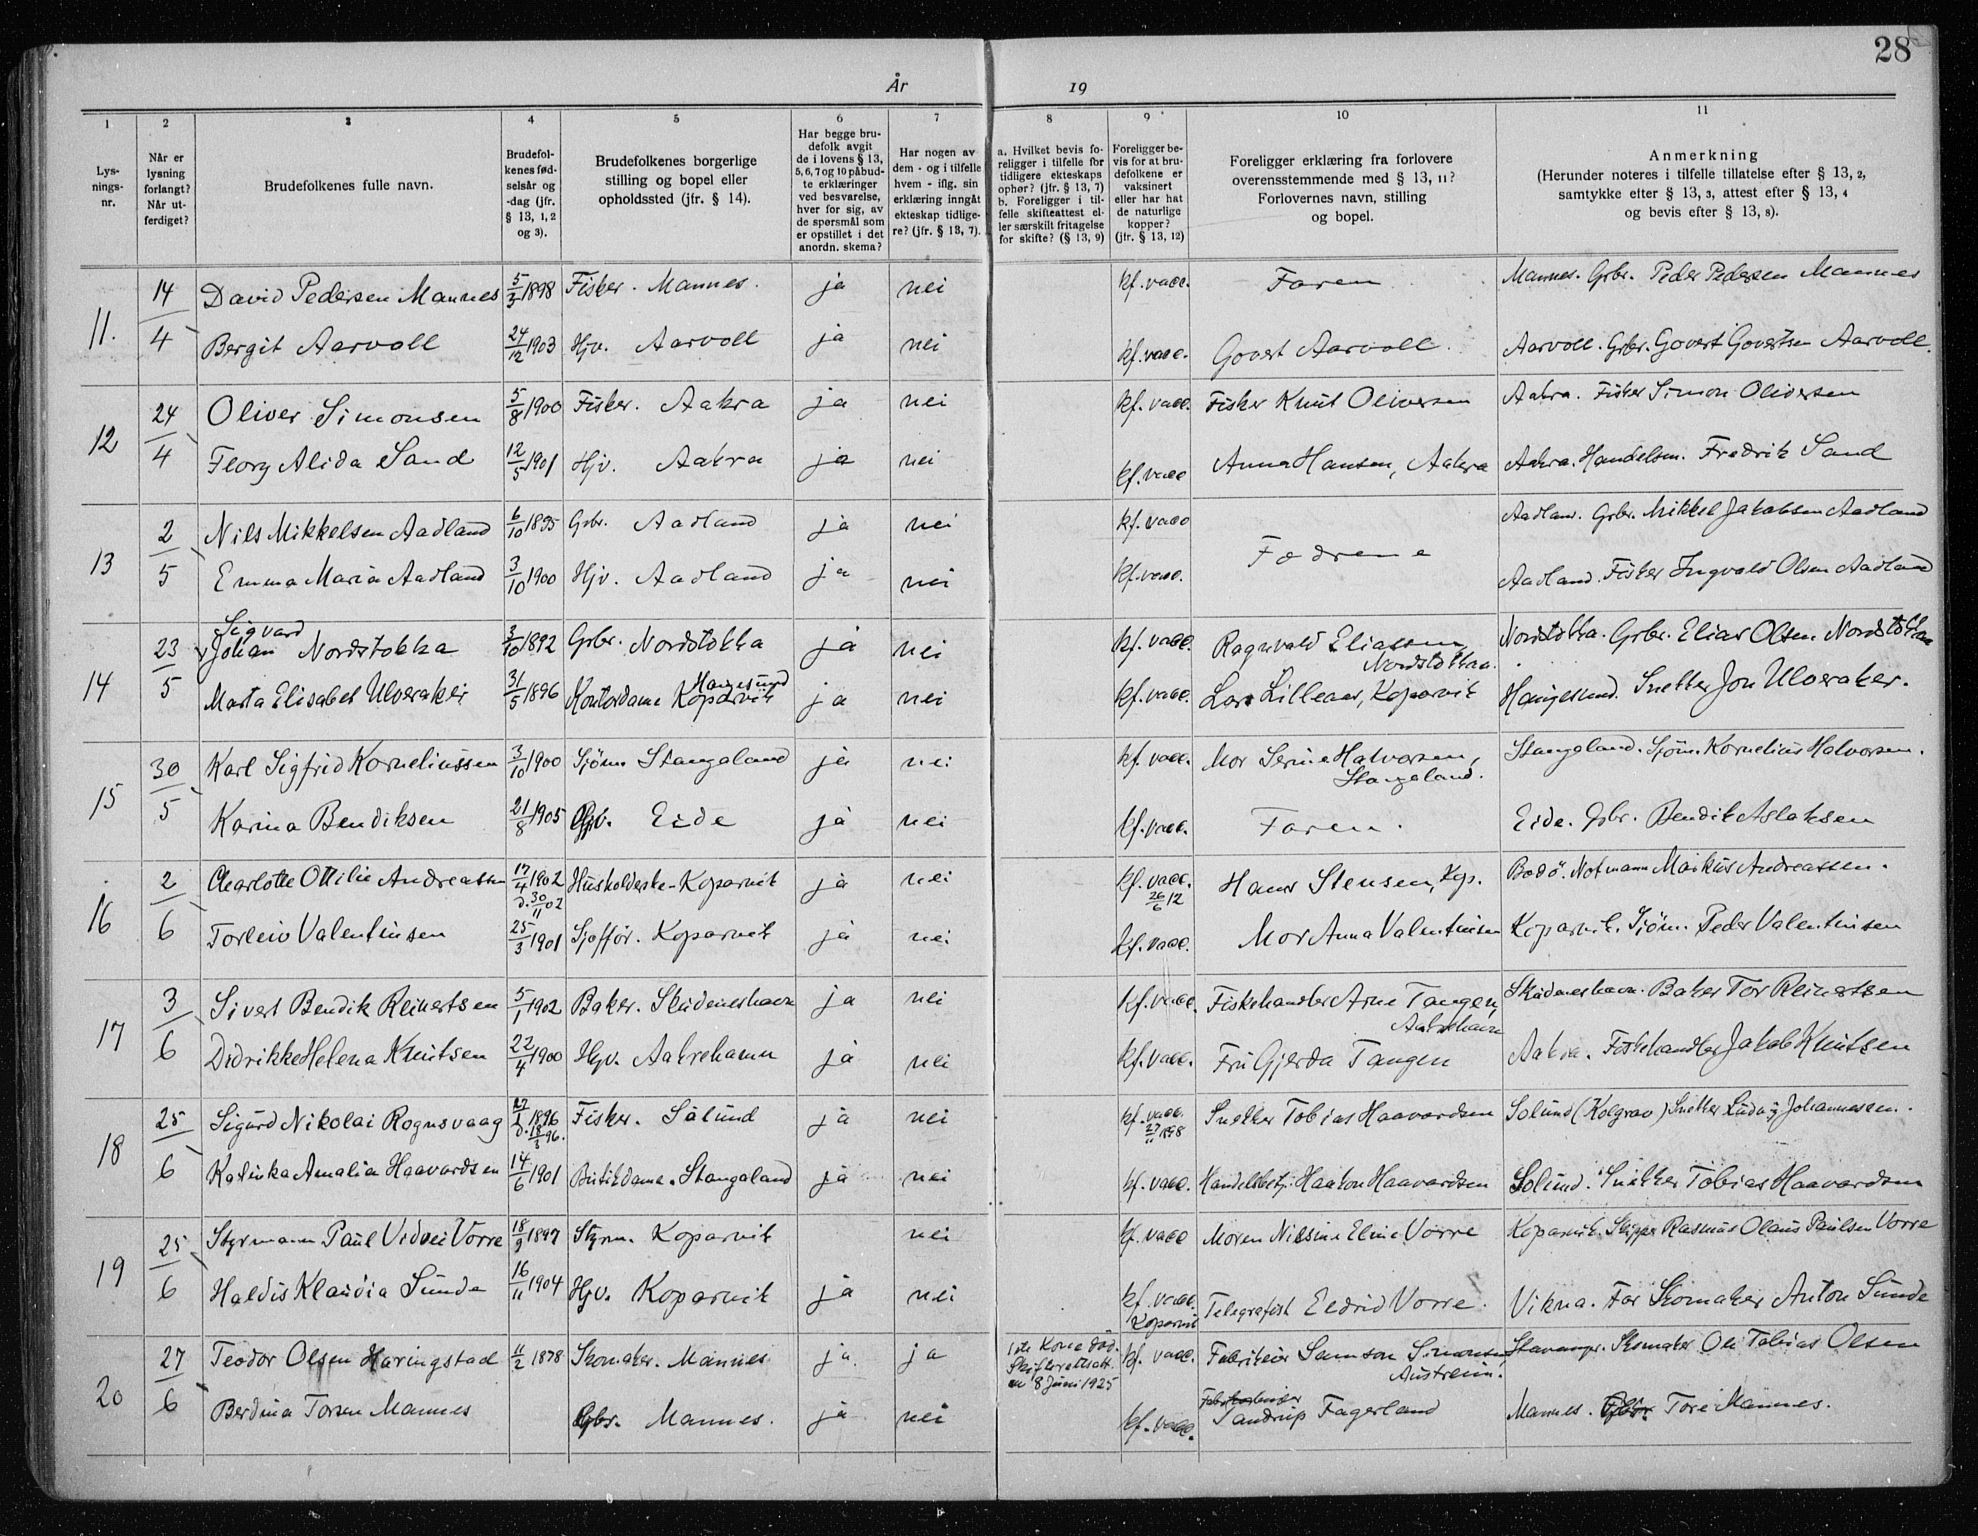 28
År 19
1 2 3 4 5 6 7 8 9 10 11
Lys-
nings-
nr.
Når er
lysning
forlangt?
Når ut-
ferdiget?
Brudefolkenes fulle navn.
Brudefol-
kenes fød-
selsår og
-dag (jfr.
§ 13, 1, 2
og 3).
Brudefolkenes borgerlige
stilling og bopel eller
opholdssted (jfr. § 14).
Har begge bru-
defolk avgit
de i lovens § 13,
5, 6, 7 og 10 påbud-
te erklæringer
ved besvarelse,
hver for sig, av
de spørsmål som
er opstillet i det
anordn. skema?
Har nogen av
dem - og i tilfelle
hvem - iflg. sin
erklæring inngåt
ekteskap tidlige-
re? (jfr. § 13, 7).
a. Hvilket bevis fo-
religger i tilfelle for
tidligere ekteskaps
ophør? (jfr. § 13, 7)
b. Foreligger i til-
felle skifteattest el-
ler særskilt fritagelse
for skifte? (§ 13, 9)
Foreligger be-
vis for at bru-
defolkene er
vaksinert
eller har hat
de naturlige
kopper?
(jfr. § 13, 12)
Foreligger erklæring fra forlovere
overensstemmende med § 13, 11?
Forlovernes navn, stilling
og bopel.
Anmerkning
(Herunder noteres i tilfelle tillatelse efter § 13, 2,
samtykke efter § 13, 3, attest efter § 13, 4
og bevis efter § 13, 8).
11. 14/4 David Pedersen Mannes 5/3 1898 Fisker. Mannes. ja nei kf. vacc. Faren Mannes. Grbr. Peder Pedersen Mannes
Bergit Aarvoll 24/12 1903 Hjv. Aarvoll ja nei kf. vacc. Govert Aarvoll. Aarvoll. Grbr. Govert Govertsen Aarvoll.
12 24/4 Oliver Simonsen 5/8 1900 Fisker. Aakra ja nei kf. vacc. Fisker Knut Oliversen Aakra. Fisker Simon Olidersen
Flory Alida Sand 12/5 1901 Hjv. Aakra ja nei kf. vacc Anna Hansen, Aakra Aakra. Handelsm. Fredrik Sand
13 2/5 Nils Mikkelsen Aadland 6/10 1895 Grbr. Aadland ja nei kf. vacc Fedrene Aadland. Grbr. Mikkel Jakobsen Aadland
Emma Maria Aadland 3/10 1900 Hjv. Aadland ja nei kf. vacc. Aadland. Fisker Ingvald Olsen Aadland
Sigvard
14 23/5 Johan Nordstokka 3/10 1892 Grbr. Nordstokka ja nei kf. vacc. Ragnvald Eliassen Nordstokka. Nordstokka. Grbr. Elias Olsen Nordstokka
Haugesund
Marta Elisabet Ulveraker 31/5 1896 Kontordame Kopervik ja nei kf. vacc. Lars Lilleaas, Kopervik Haugesund. Snekker Jon Ulveraker.
15 30/5 Karl Sigfrid Korneliussen 3/10 1900 Sjøm. Stangaland ja nei kf. vacc. Mor Serine Halvorsen, Stangaland. Stangaland. Sjøm. Kornelius Halvorsen.
Karina Bendiksen 21/8 1905 Hjv. Eide ja nei kf. vacc. Faren. Eide. Grbr. Bendik Aslaksen
16 2/6 Charlotte Ottilie Andreassen 17/4 1902 d. 30/11 02 Kopervik ja nei kf. vacc. 26/6 12 Hans Stensen, Kop. Bodø. Notmann Markus Andreassen.
Torleiv Valentinsen 25/3 1901 Sjofför. Kopervik ja nei kf. vacc. Mor Anna Valentinsen Kopervik. Sjøm. Peder Valentinsen
17 3/6 Sivert Bendik Reinertsen 5/1 1902 Baker. Skudeneshavn ja nei kf. vacc. Fiskehandler Arne Tangen, Aakrehavn Skudneshavn. Baker Tor Reinertsen
Didrikke Helena Knutsen 22/4 1900 Hjv. Aakrehamn ja nei kf. vacc. Fru Gjerda Tangen Aakra. Fiskehandler Jakob Knutsen
18 25/6 Sigurd Nikolai Rognsvaag 27/1 1896 d. 18/3 96. Fisker. Sålund ja nei kf. vacc. 27/11 1898 Snekker Tobias Haavardsen Solund (Kolgrav) Snekker Ludvig Johannessen.
Katinka Amalia Haavardsen 14/6 1901 Butikdame. Stangaland ja nei kf. vacc. Handelsbetj. Haakon Haavardsen Solund. Snekker Tobias Haavardsen
19 25/6 Styrmann Paul Vidvei Vorre 18/9 1897 Styrm. Kopervik nei kf. vacc Moren Nilsine Eline Vorre Kopervik. Skipper Rasmus Olaus Paulsen Vorre
Haldis Klaudia Sunde 16/11 1904 Hjv. Kopervik ja nei kf. vacc. Kopervik Telegrafist Eldrid Vorre. Vikna. Far Skomaker Anton Sunde
20 27/6 Teodor Olsen Haringstad 11/2 1878 Skomaker. Mannes ja ja 1ste Kone død. Skifterettsatt. 8 Juni 1925 kf. vacc. Fabrikeier Samson Simonsen Austreim. Stavanger. Skomaker Ole Tobias Olsen
Berdina Torsen Mannes Grbr. Mannes. ja nei kf. vacc. Sandrup Fagerland Mannes. Tore Mannes.